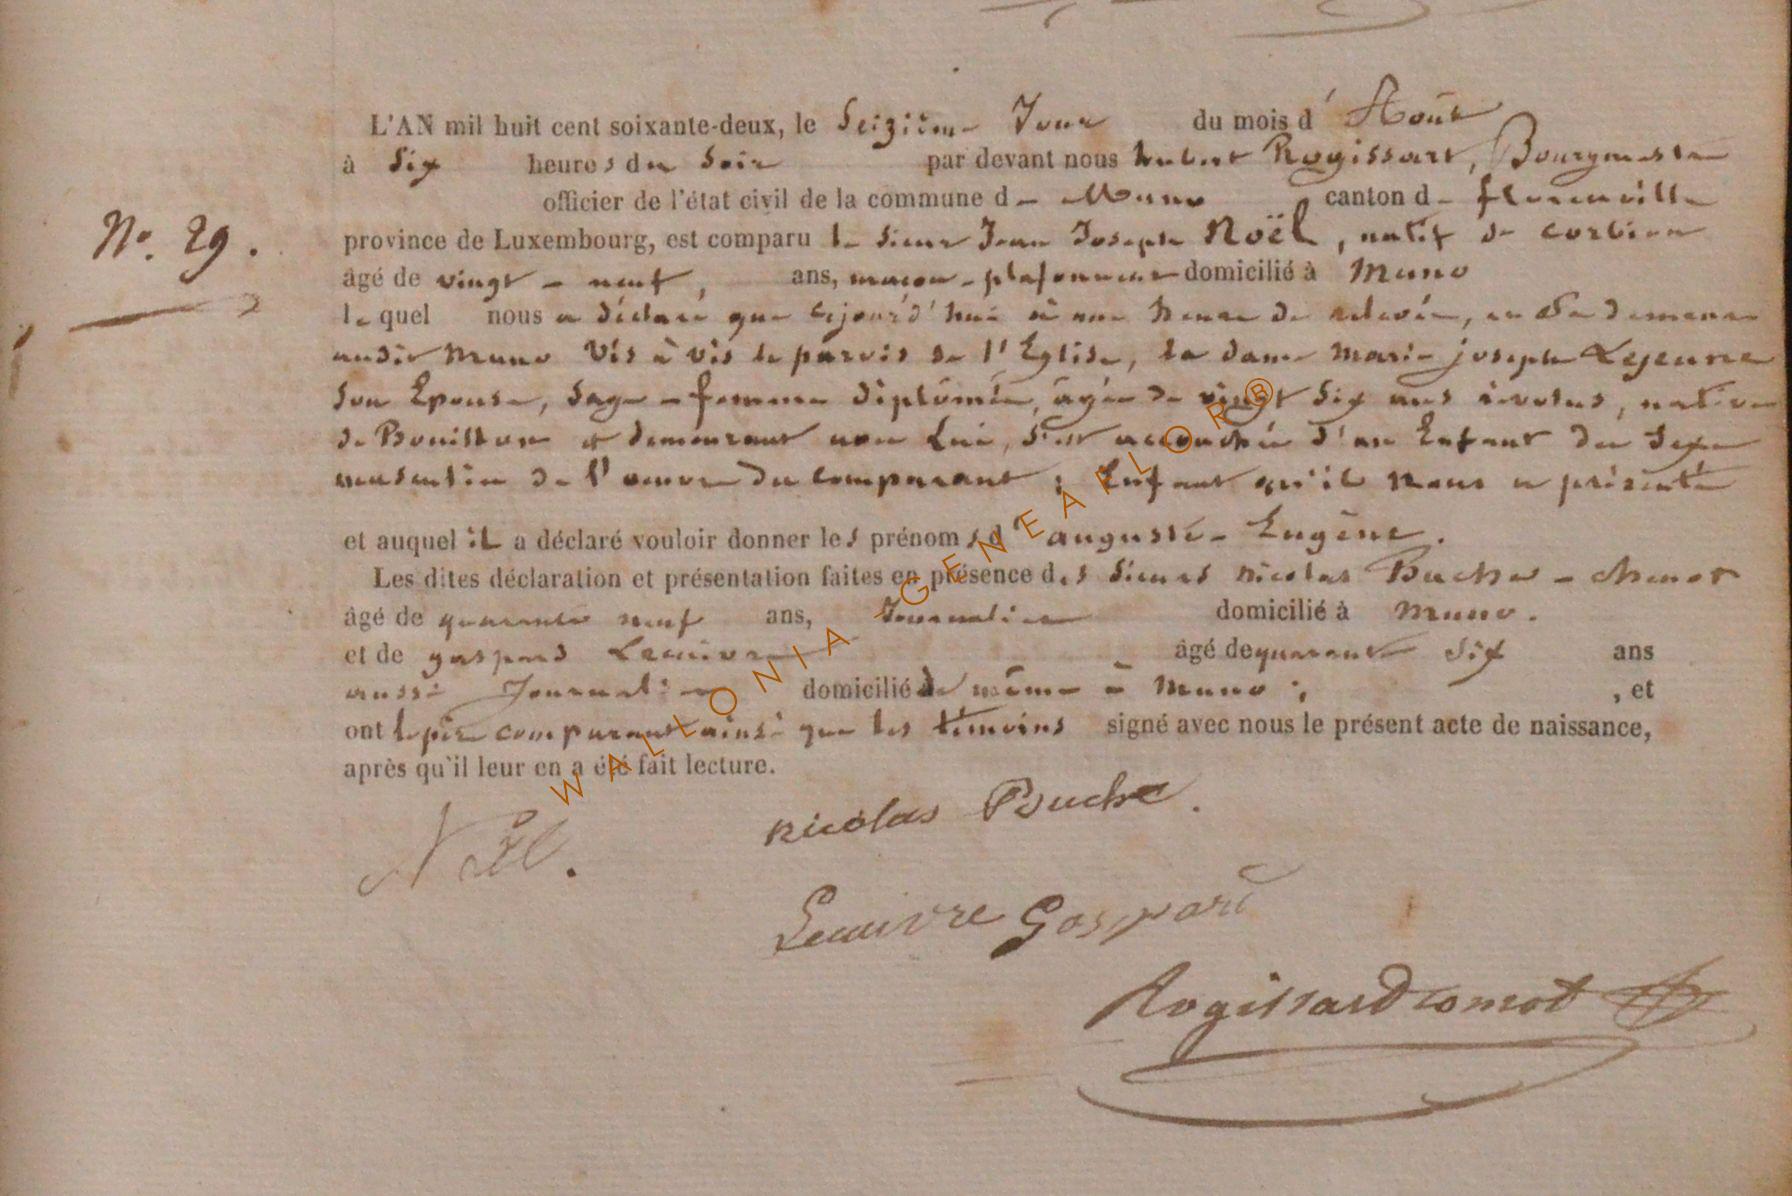 L'AN mil huit cent soixante-deux, le Seizième Jour du mois d'Août
à Six heures du Soir par devant nous hubert Rogissart, Bourgmestre
officier de l'état civil de la commune de Muno canton de florenville
N°. 29.
province de Luxembourg, est comparu le sieur Jean Joseph Noël, natif de corbion
âgé de vingt-neuf, ans, maçon-plafonneur domicilié à Muno
lequel nous a déclaré que cejourd'hui à une heure de relevée, en Sa demeure
audit Muno Vis à vis le parvis de l'Eglise, la dame marie joseph Lejeune
son Epouse, Sage-femme diplômée, âgée de vingt Six ans révolus, native
de Bouillon et demeurant avec Lui, s'est accouchée d'un Enfant du Sexe
masculin de l'œuvre du comparant; Enfant qu'il nous a présenté
et auquel il a déclaré vouloir donner les prénoms d'auguste-Eugène.
Les dites déclaration et présentation faites en présence des Sieurs nicolas Buche-
âgé de quarante neuf ans, Journalier domicilié à Muno.
et de gaspard Lecuivre âgé de quarante Six ans
aussi Journalier domicilié de même à Muno; , et
ont le père comparant ainsi que les témoins signé avec nous le présent acte de naissance,
après qu'il leur en a été fait lecture.
Noël.
nicolas Buche.
Lecuivre Gaspard
Rogissart
WALLONIA - GENEAFLOR®